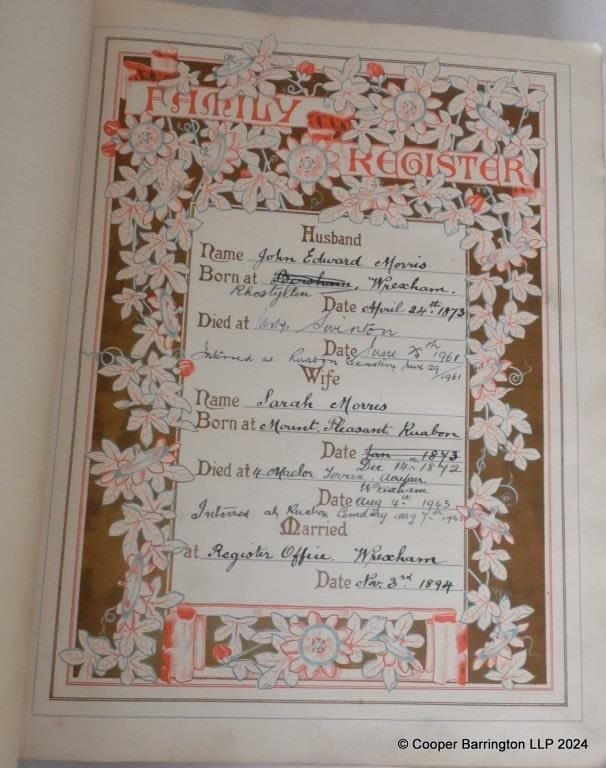 FAMILY
REGISTER
Husband
Name John Edward Morris
Born at Bersham, Wrexham.
Rhostyllen
Date April 24th 1873
Died at Swinton
Date June 1961
Interred at Ruabon Cemetery June 29/1961
Wife
Name Sarah Morris
Born at Mount Pleasant Ruabon
Date Jan 1873
Dec 14 1872
Died at 4 Maelor Terrace, Acrefair
Wrexham
Date Aug 4th 1943
Interred at Ruabon Cemetery Aug 7th 1943
Married
at Register Office. Wrexham
Date Nov. 3rd 1894
© Cooper Barrington LLP 2024